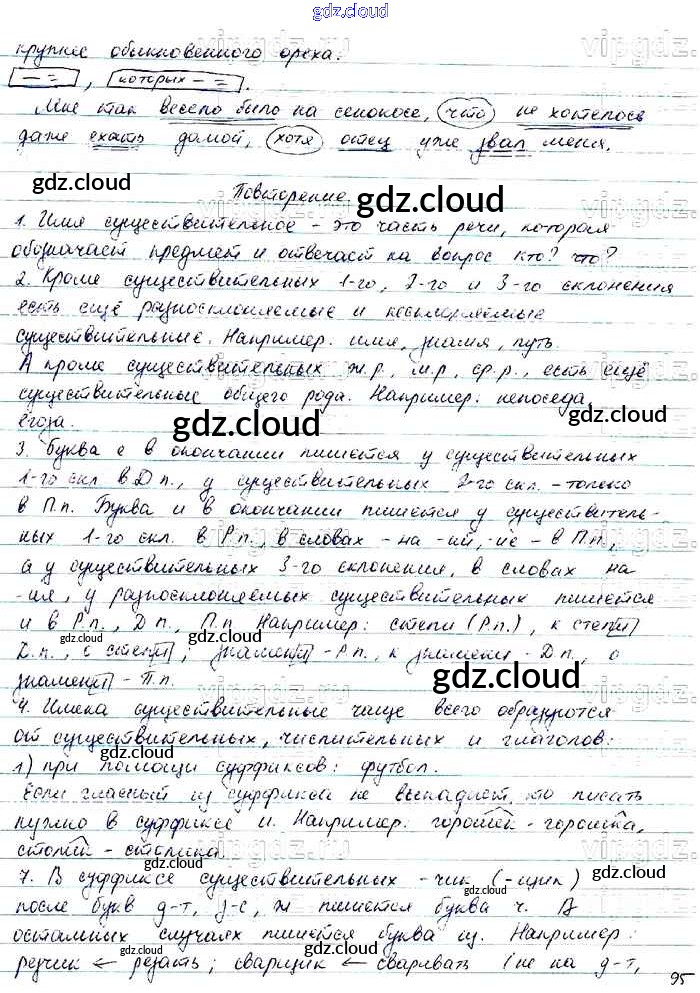 gdz.cloud
крупнее обыкновенного ореха.
[– =], [которых – =].
Мне так весело было на сенокосе, (что) не хотелось
даже ехать домой, (хотя) отец уже звал меня.
gdz.cloud
Повторение.
gdz.cloud
1. Имя существительное – это часть речи, которая
обозначает предмет и отвечает на вопрос кто? что?
2. Кроме существительных 1-го, 2-го и 3-го склонения
есть ещё разносклоняемые и несклоняемые
существительные. Например: имя, знамя, путь.
А кроме существительных ж.р., м.р., ср.р., есть ещё
существительные общего рода. Например: непоседа
егоза.
gdz.cloud
3. Буква е в окончании пишется у существительных
1-го скл. в Д.п., у существительных 2-го скл. – только
в П.п. Буква и в окончании пишется у существитель-
ных 1-го скл. в Р.п., в словах -на -ий, -ие – в П.п.,
а у существительных 3-го склонения, в словах на
-ия, у разносклоняемых существительных пишется
и в Р.п., Д.п., П.п. Например: степи (Р.п.), к степи
gdz.cloud
gdz.cloud
Д.п., о степи; знамени – Р.п., к знамени – Д.п., о
знамени – П.п.
gdz.cloud
4. Имена существительные чаще всего образуются
от существительных, числительных и глаголов:
gdz.cloud
1) при помощи суффиксов: футбол.
Если гласный из суффикса не выпадает, то писать
нужно в суффиксе и. Например: горошек – горошка,
столик – столика.
gdz.cloud
gdz.cloud
7. В суффиксе существительных -чик (-щик)
gdz.cloud
после букв д-т, з-с, ж пишется буква ч. В
остальных случаях пишется буква щ. Например:
gdz.cloud
gdz.cloud
резчик ← резать; сварщик ← сваривать (не на д-т,
95